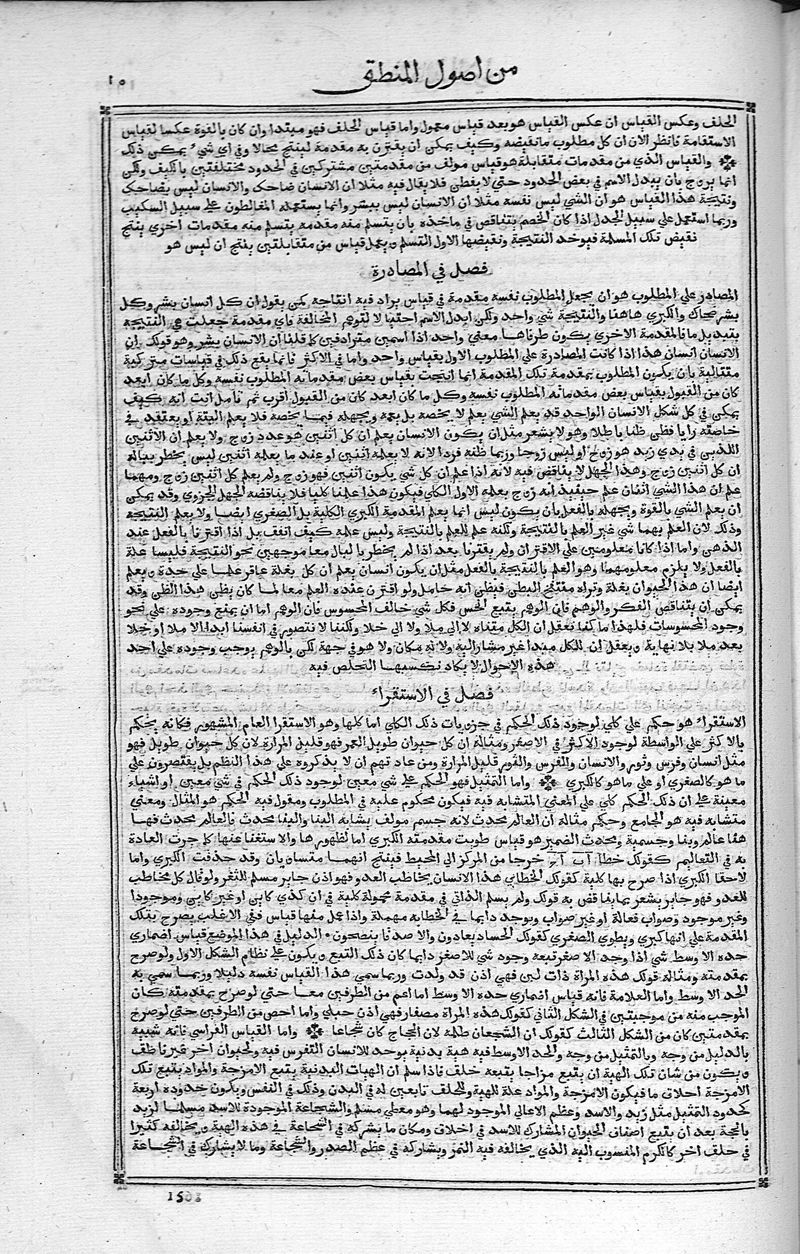 من اصول المنطق
١٥
الخلف وعكس القياس ان عكس القياس هو بعد قياس معمول واما قياس الخلف فهو مبتدا وان كان بالقوة عكسا لقياس
الاستقامة فانظر الان ان كل مطلوب ما نقيضه وكيف يمكن ان يقترن به مقدمة لينتج محالا وفي اي شي يمكن ذلك
والقياس الذي من مقدمات متقابلة هو قياس مولف من مقدمتين مشتركين في الحدود مختلفتين بالكيف ولكن
انما يروج بان يبدل الاسم في بعض الحدود حتي لا يفطن فلا يقال فيه مثلا ان الانسان ضاحك والانسان ليس بضاحك
ونتيجة هذا القياس هو ان الشي ليس نفسه مثلا ان الانسان ليس ببشر وانما يستعمله المغالطون علي سبيل التبكيت
وربما استعمل علي سبيل الجدل اذا كان الخصم يتناقض في ماخذه بان يتسلم منه مقدمة يتسلم منه مقدمات اخري ينتج
نقيض تلك المسلمة فيوخذ النتيجة ونقيضها الاول التسلم ويعمل قياس من متقابلتين ينتج ان ليس هو
فصل في المصادرة
المصادر علي المطلوب هو ان يجعل المطلوب نفسه مقدمة في قياس يراد فيه انتاجه كمن يقول ان كل انسان بشر وكل
بشر ضحاك والكبري هاهنا والنتيجة شي واحد ولكن ابدل الاسم احتيالا لتوهم المخالفة فاي مقدمة جعلت هي النتيجة
بتبديل ما فالمقدمة الاخري يكون طرفاها معني واحد اذا اسمين مترادفين كما قلنا ان الانسان بشر وهو قولك ان
الانسان انسان هذا اذا كانت المصادرة علي المطلوب الاول بقياس واحد واما في الاكثر فانما يقع ذلك في قياسات متركبة
متتالية بان يكون المطلوب بمقدمة تلك المقدمة انما انتجت بقياس بعض مقدماته المطلوب نفسه وكل ما كان ابعد
كان من القبول اقرب ثم تامل انت انه كيف
يمكن في كل شكل الانسان الواحد قد يعلم الشي بعلم لا يخصه بل يعمه ويجهله فيما يخصه
ان كل اثنين زوج وهذا الجهل لا يناقض
علم ان هذا الشي اثنان علم حينيذ انه زوج بعلمه الاول الكلي فيكون هذا علما كليا فلا يناقضه الجهل الجزوي وقد يمكن
ان يعلم الشي بالقوة ويجهله بالفعل بان يكون ليس انما يعلم المقدمة الكبري الكلية بل الصغري ايضا ولا يعلم النتيجة
وذلك لان العلم بهما شي غير العلم بالنتيجة ولكنه علة للعلم بالنتيجة وليس علة كيف اتفق بل اذا اقترنا بالفعل عند
الذهن واما اذا كانا معلومين علي الافتراق ولم يقترنا بعد اذا لم يخطر بالبال معا موجهين نحو النتيجة فليسا علة
بالفعل ولا يلزم معلومهما وهو العلم بالنتيجة بالفعل مثل ان يكون انسان يعلم ان كل بغلة عاقر علما علي حدة ويعلم
ايضا ان هذا الحيوان بغلة ويراه منتفخ البطن فيظن انه حامل ولو اقترن عنده العلم معا لما كان يظن هذا الظن وقد
يمكن ان يتناقض الفكر والوهم فان الوهم يتبع الحس فكل شي خالف المحسوس فان الوهم اما ان يمنع وجوده علي نحو
وجود المحسوسات فلهذا ما كنا نعقل ان الكل متناه لا الي ملا ولا الي خلا ولكننا لا نتصور في انفسنا ابدا الا ملا او خلا
بعد ملا بلا نهاية ونعقل ان للكل مبدا غير مشار اليه ولا له مكان ولا هو في جهة لكن الوهم يوجب وجوده علي احد
هذه الاحوال لا يكاد نكسبها التخلص فيه
فصل في الاستقراء
الاستقراء هو حكم علي كلي لوجود ذلك الحكم في جزيات ذلك الكلي اما كلها وهو الاستقرا العام المشهور فكانه يحكم
بالاكثر علي الواسطة لوجود الاكثر في الاصغر ومثاله ان كل حيوان طويل العمر فهو قليل المرارة لان كل حيوان طويل فهو
مثل انسان وفرس وثور والانسان والفرس والثور قليل المرارة ومن عادتهم ان لا يذكروه علي هذا النظم بل يقتصرون علي
ما هو كالصغري او علي ما هو كالكبري واما التمثيل فهو الحكم علي شي معين لوجود ذلك الحكم في شي معين او اشياء
معينة علي ان ذلك الحكم كلي علي المعني المتشابه فيه فيكون محكوم عليه في المطلوب ومقول فيه الحكم هو المثال ومعني
متشابه فيه هو الجامع وحكم مثاله ان العالم محدث لانه جسم مولف يشابه البنا والبنا محدث فالعالم محدث فهاهنا
عالم وبنا وجسمية ومحدث الضمير هو قياس طويت مقدمته الكبري اما لظهورها والاستغنا عنها كما جرت العادة
به في التعاليم كقولك خطا خرجا من المركز الي المحيط فينتج انهما متساويان وقد حذفت الكبري واما
كقولك الخطابي هذا الانسان يخاطب العدو فهو اذن خاين مسلم للثغر ولو قال كل مخاطب
للعدو فهو خاين يشعر بما يناقض به قوله ولم يسلم
وغير موجود وصواب فعاله او غير صواب ويوجد دايما في الخطابة مهملة واذا عمل منها قياس ففي الاغلب يصرح بتلك
المقدمة علي انها كبري ويطوي الصغري كقولك الحساد يعادون والاصدقا ينصحون الدليل في هذا الموضع قياس اضماري
حده الاوسط شي اذا وجد للاصغر تبعه وجود شي للاصغر دايما كان ذلك التبع ويكون علي نظام الشكل الاول ولو صرح
بمقدمته ومثاله قولك هذه المراة ذات لبن فهي اذن قد ولدت وربما سمي هذا القياس نفسه دليلا وربما سمي به
الحد الاوسط واما العلامة فانه قياس اضماري حده الاوسط اما اعم من الطرفين معا حتي لو صرح بمقدمته كان
الموجب منه من موجبتين في الشكل الثاني كقولك هذه المراة مصفار فهي اذن حبلي واما اخص من الطرفين حتي لو صرح
بمقدمتين كان من الشكل الثالث كقولك ان الشجعان ظلمة لان الحجاج كان شجاعا واما القياس الفراسي فانه شبيه
بالدليل من وجه وبالتمثيل من وجه والحد الاوسط فيه هية بدنية يوجد للانسان المتفرس فيه ولحيوان اخر غير ناطق
ويكون من شان تلك الهية ان يتبع مزاجا يتبعه خلف فاذا سلم ان الهيات البدنية يتبع الامزجة والمواد يتبع تلك
الامزجة اخلاق ما فيكون الامزجة والمواد علة للهية والخلف تابعين له في البدن وذلك في النفس ويكون حدوده اربعة
كحدود التمثيل مثل زيد والاسد وعظم الاعالي الموجود لهما وهو معطي مسلم والشجاعة الموجودة للاسد مسلما لزيد
بالحجة بعد ان يتبع اصناف الحيوان المشارك للاسد في اخلاق
في خلف اخر كالكرم المنسوب اليه الذي يخالفه فيه النمر ويشاركه في عظم الصدر والشجاعة وما لا يشارك في الشجاعة